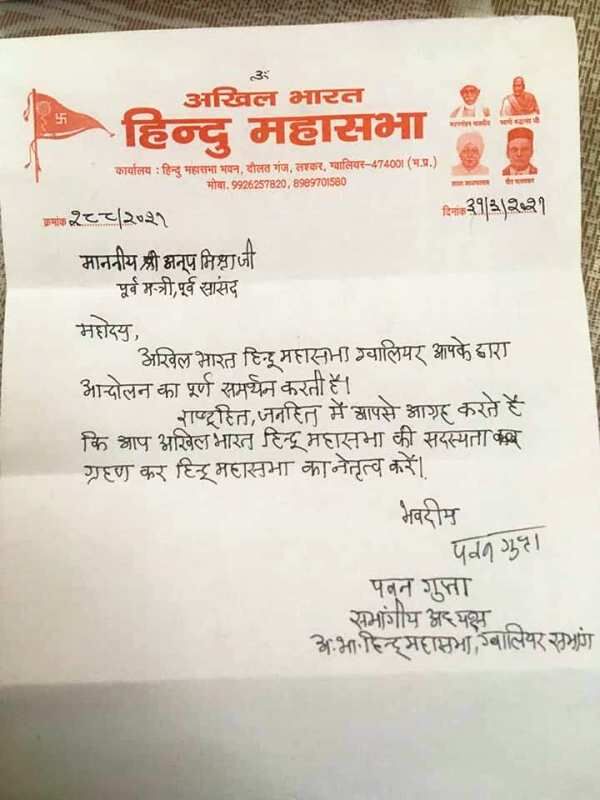 ॐ
अखिल भारत
हिन्दु महासभा
कार्यालय : हिन्दु महासभा भवन, दौलत गंज, लश्कर, ग्वालियर-474001 (म.प्र.)
मोबा. 9926257820, 8989701580
क्रमांक २८८/२०२१
दिनांक ३१/३/२०२१
माननीय श्री अनूप मिश्रा जी
पूर्व मन्त्री, पूर्व सांसद
महोदय,
अखिल भारत हिन्दू महासभा ग्वालियर आपके द्वारा
आन्दोलन का पूर्ण समर्थन करती है।
राष्ट्रहित, जनहित में आपसे आग्रह करते है
कि आप अखिल भारत हिन्दू महासभा की सदस्यता
ग्रहण कर हिन्दू महासभा का नेतृत्व करें।
भवदीय
पवन गुप्ता
पवन गुप्ता
सभांगीय अध्यक्ष
अ.भा.हिन्दू महासभा, ग्वालियर सभांग